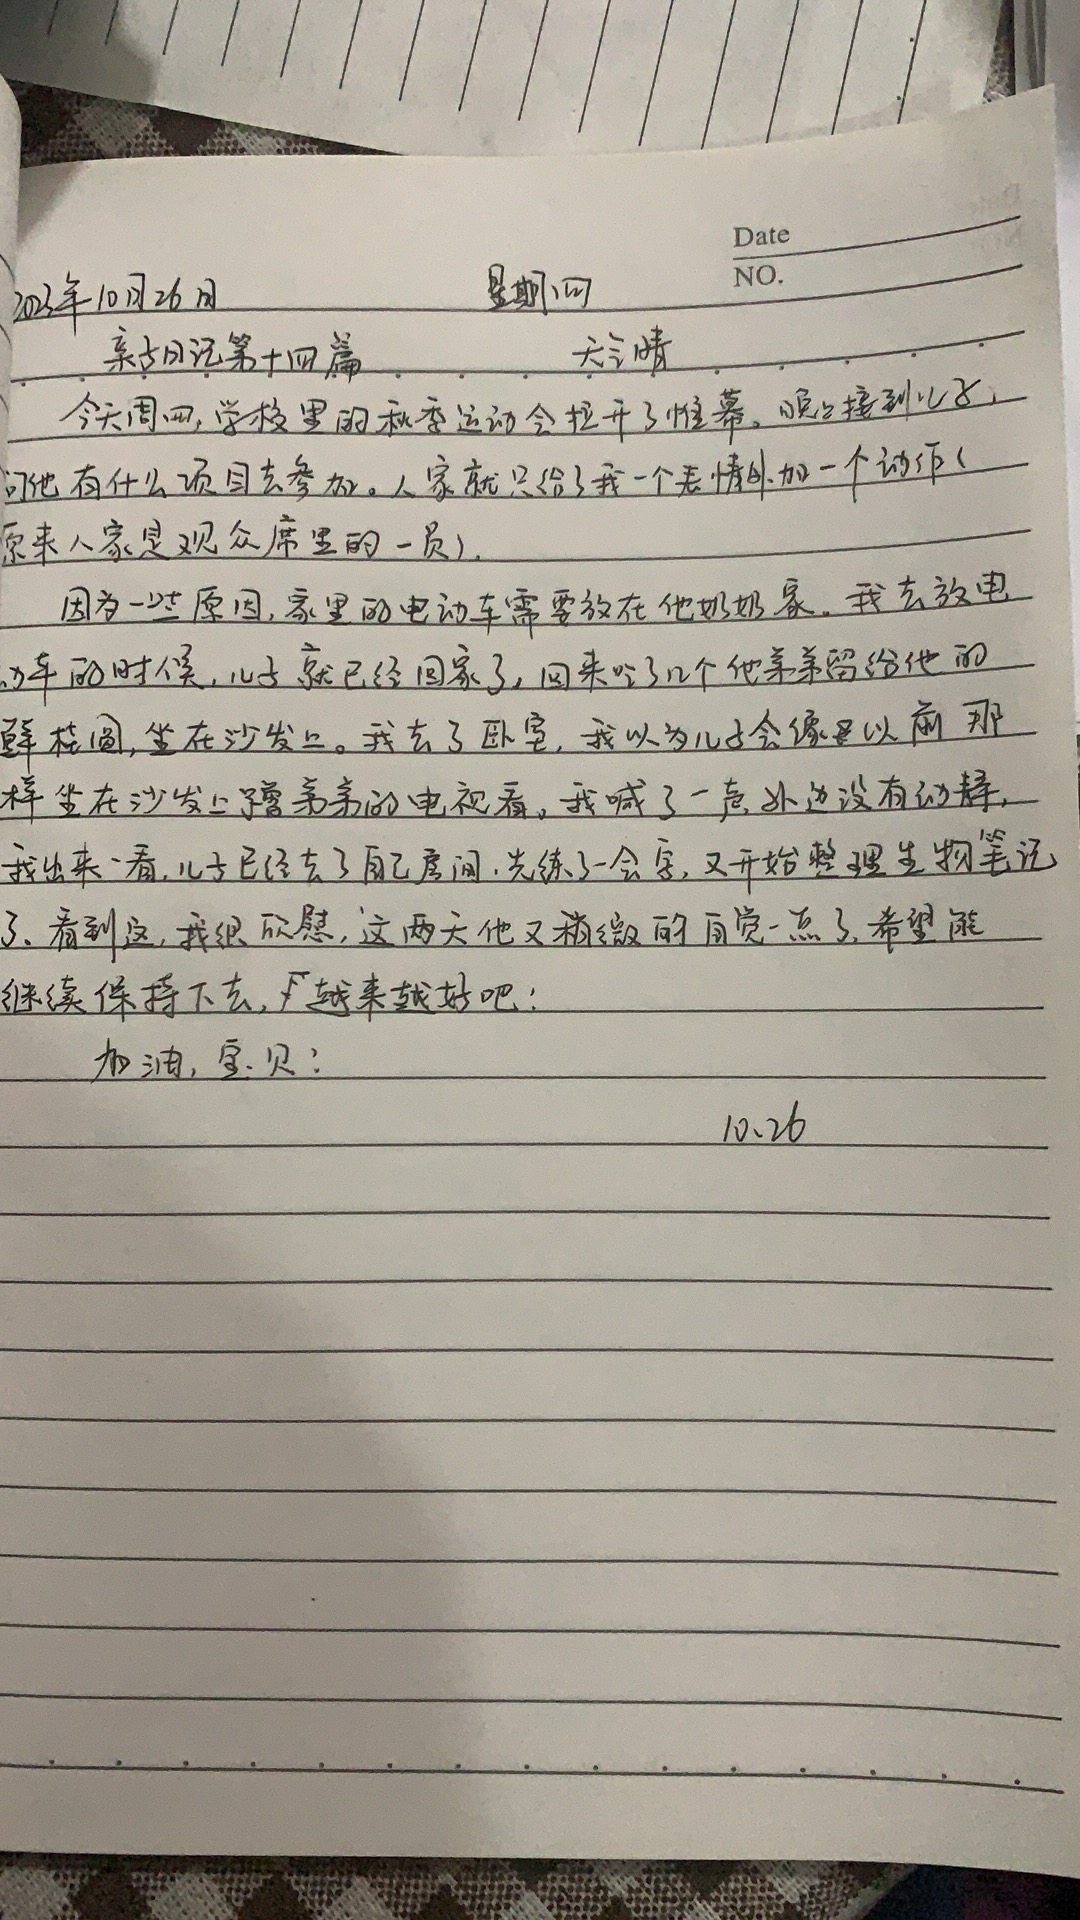 Date
NO.
2023年10月26日 星期四
亲子日记第十四篇 天气晴
今天周四,学校里的秋季运动会拉开了帷幕。晚上接到儿子,
问他有什么项目去参加。人家就只给了我一个表情外加一个动作(
原来人家是观众席里的一员).
因为一些原因,家里的电动车需要放在他奶奶家。我去放电
动车的时候,儿子就已经回家了,回来吃了几个他弟弟留给他的
鲜桂圆,坐在沙发上。我去了卧室,我以为儿子会像以前那
样坐在沙发上蹭弟弟的电视看。我喊了一声外边没有动静,
我出来一看,儿子已经去了自己房间.先练了一会字,又开始整理生物笔记
了、看到这,我很欣慰,这两天他又稍微的自觉一点了.希望能
继续保持下去,越来越好吧!
加油,宝贝!
10.26